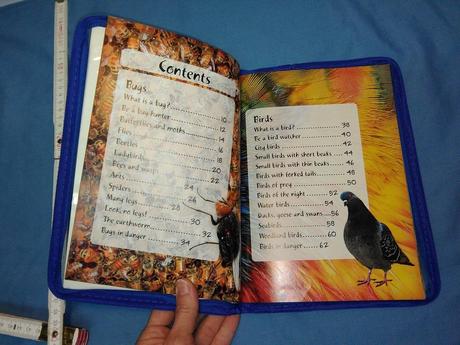 Contents
Bugs
What is a bug?..................10
Be a bug hunter..................12
Butterflies and moths..................14
Flies..................16
Beetles..................18
Ladybirds..................20
Bees and wasps..................22
Ants..................24
Spiders..................26
Many legs..................28
Look, no legs!..................30
The earthworm..................32
Bugs in danger..................34
Birds
What is a bird?..................38
Be a bird watcher..................40
City birds..................42
Small birds with short beaks..........44
Small birds with thin beaks..........46
Birds with forked tails..........48
Birds of prey..................50
Birds of the night..........52
Water birds..................54
Ducks, geese and swans....56
Seabirds..................58
Woodland birds..........60
Birds in danger..........62